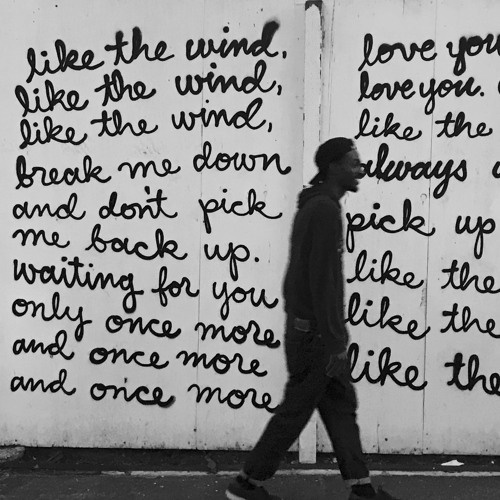 like the wind,
like the wind,
like the wind,
break me down
and don't pick
me back up.
waiting for you
only once more
and once more
and once more
love you
love you.
like the
always
pick up
like the
like the
like the